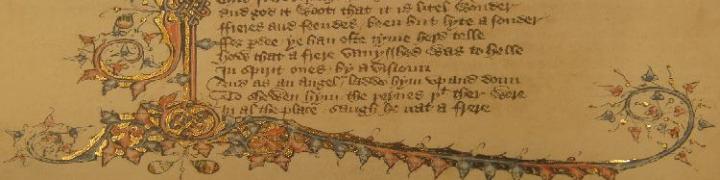 and god it woot that it is litel wonder
ffreres and feendes been but lyte a sonder
ffor pdee ye han ofte tyme herd telle
how that a frere vanysshed was to helle
In spirit ones by a visioun
And as an angel ladde hym up and doun
To shewen hym the peynes yt ther were
In al the place saugh he nat a frere